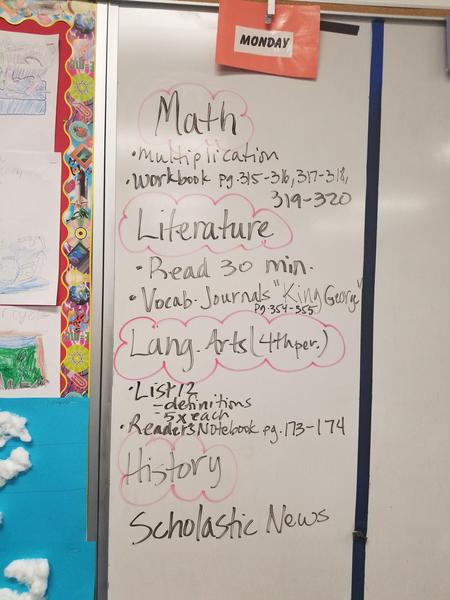 MONDAY
Math
•multiplication
•workbook pg.315-316, 317-318,
319-320
Literature
•Read 30 min.
•Vocab. Journals "King George"
pg.354-355
Lang. Arts (4th per.)
•List 12
-definitions
-5x each
•Readers Notebook pg.173-174
History
Scholastic News